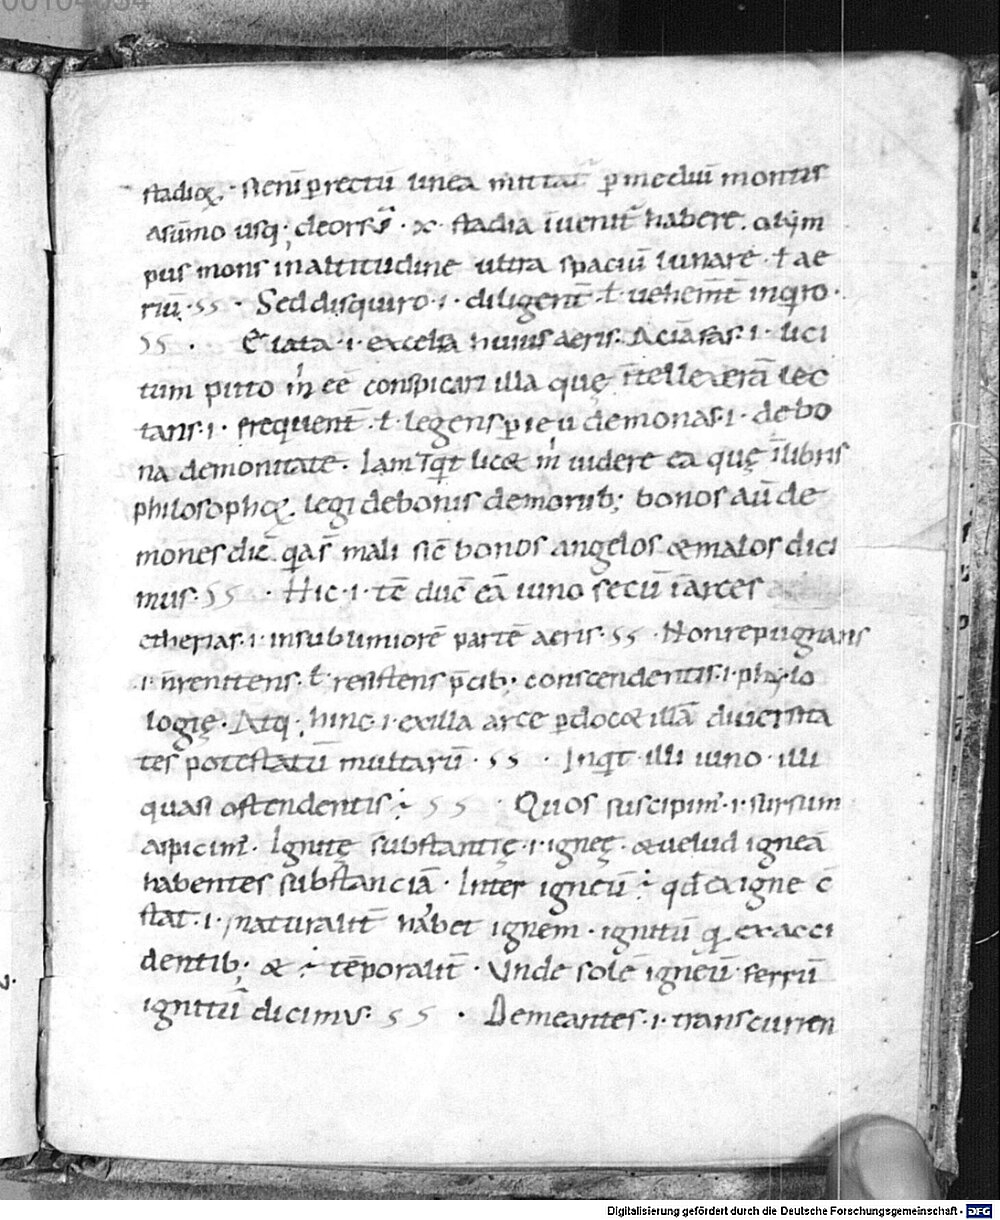 00104034
stadioꝝ · si eni ꝑ rectū linea mittat᷑ ꝑ mediū montis
a sūmo usq; deorsū · x · stadia īuenit᷑ habere. olim
pus mons in altitudine ultra spaciū lunare · ł ae
riū · 55 · Sed disquiro · i · diligent̄ · ł uehem̄t inq̄ro ·
55 · Elata · i · excelsa huius aeris. Ac iā fas · i · lici
tum puto m̄ eē conspicari illa quę ītellexerā lec
tans · i · frequent̄ · ł · legens ꝑieu demonas · i · de bo
na demonitate. Iam īqt̄ licet m̄ uidere ea quę ī libris
philosophoꝝ legi de bonis demonib; bonos aū de
mones dic̄ qāsi mali sic̄ bonos angelos et malos dici
mus · 55 · Hic · i · tc̄ duc̄ eā iuno secū ī arces
etherias · i · in sublimiorē partē aeris · 55 · Non repugnans
· i · n̄ renitens · ł resistens p̄cib; conscendentis · i · phylo
logię · Atq; hinc · i · ex illa arce ꝑdocet illā diuersita
tes potestatū multarū · 55 · Inqt̄ illi iuno · illi
quasi ostendentis · 55 · Quos suscipim᷒ · i · sursum
aspicim᷒. Ignitę substantię · i · ignęę · et uelud igneā
habentes substanciā · Inter igneū ÷ qđ ex igne c̄
stat · i · naturalit̄ habet ignem · ignitū q̄ ex acci
dentib; et ÷ tēporalit̄ · Unde solē igneū ferrū
ignitū dicimus · 55 · Demeantes · i · transcurren
Digitalisierung gefördert durch die Deutsche Forschungsgemeinschaft - DFG